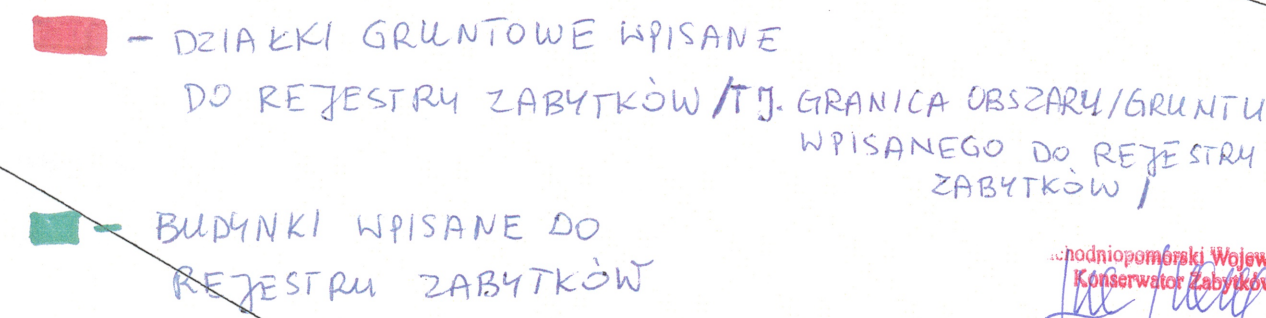 - DZIAŁKI GRUNTOWE WPISANE
DO REJESTRU ZABYTKÓW /TJ. GRANICA OBSZARU/GRUNTU
WPISANEGO DO REJESTRU
ZABYTKÓW /
- BUDYNKI WPISANE DO
REJESTRU ZABYTKÓW
chodniopomorski Wojew
Konserwator Zabytków